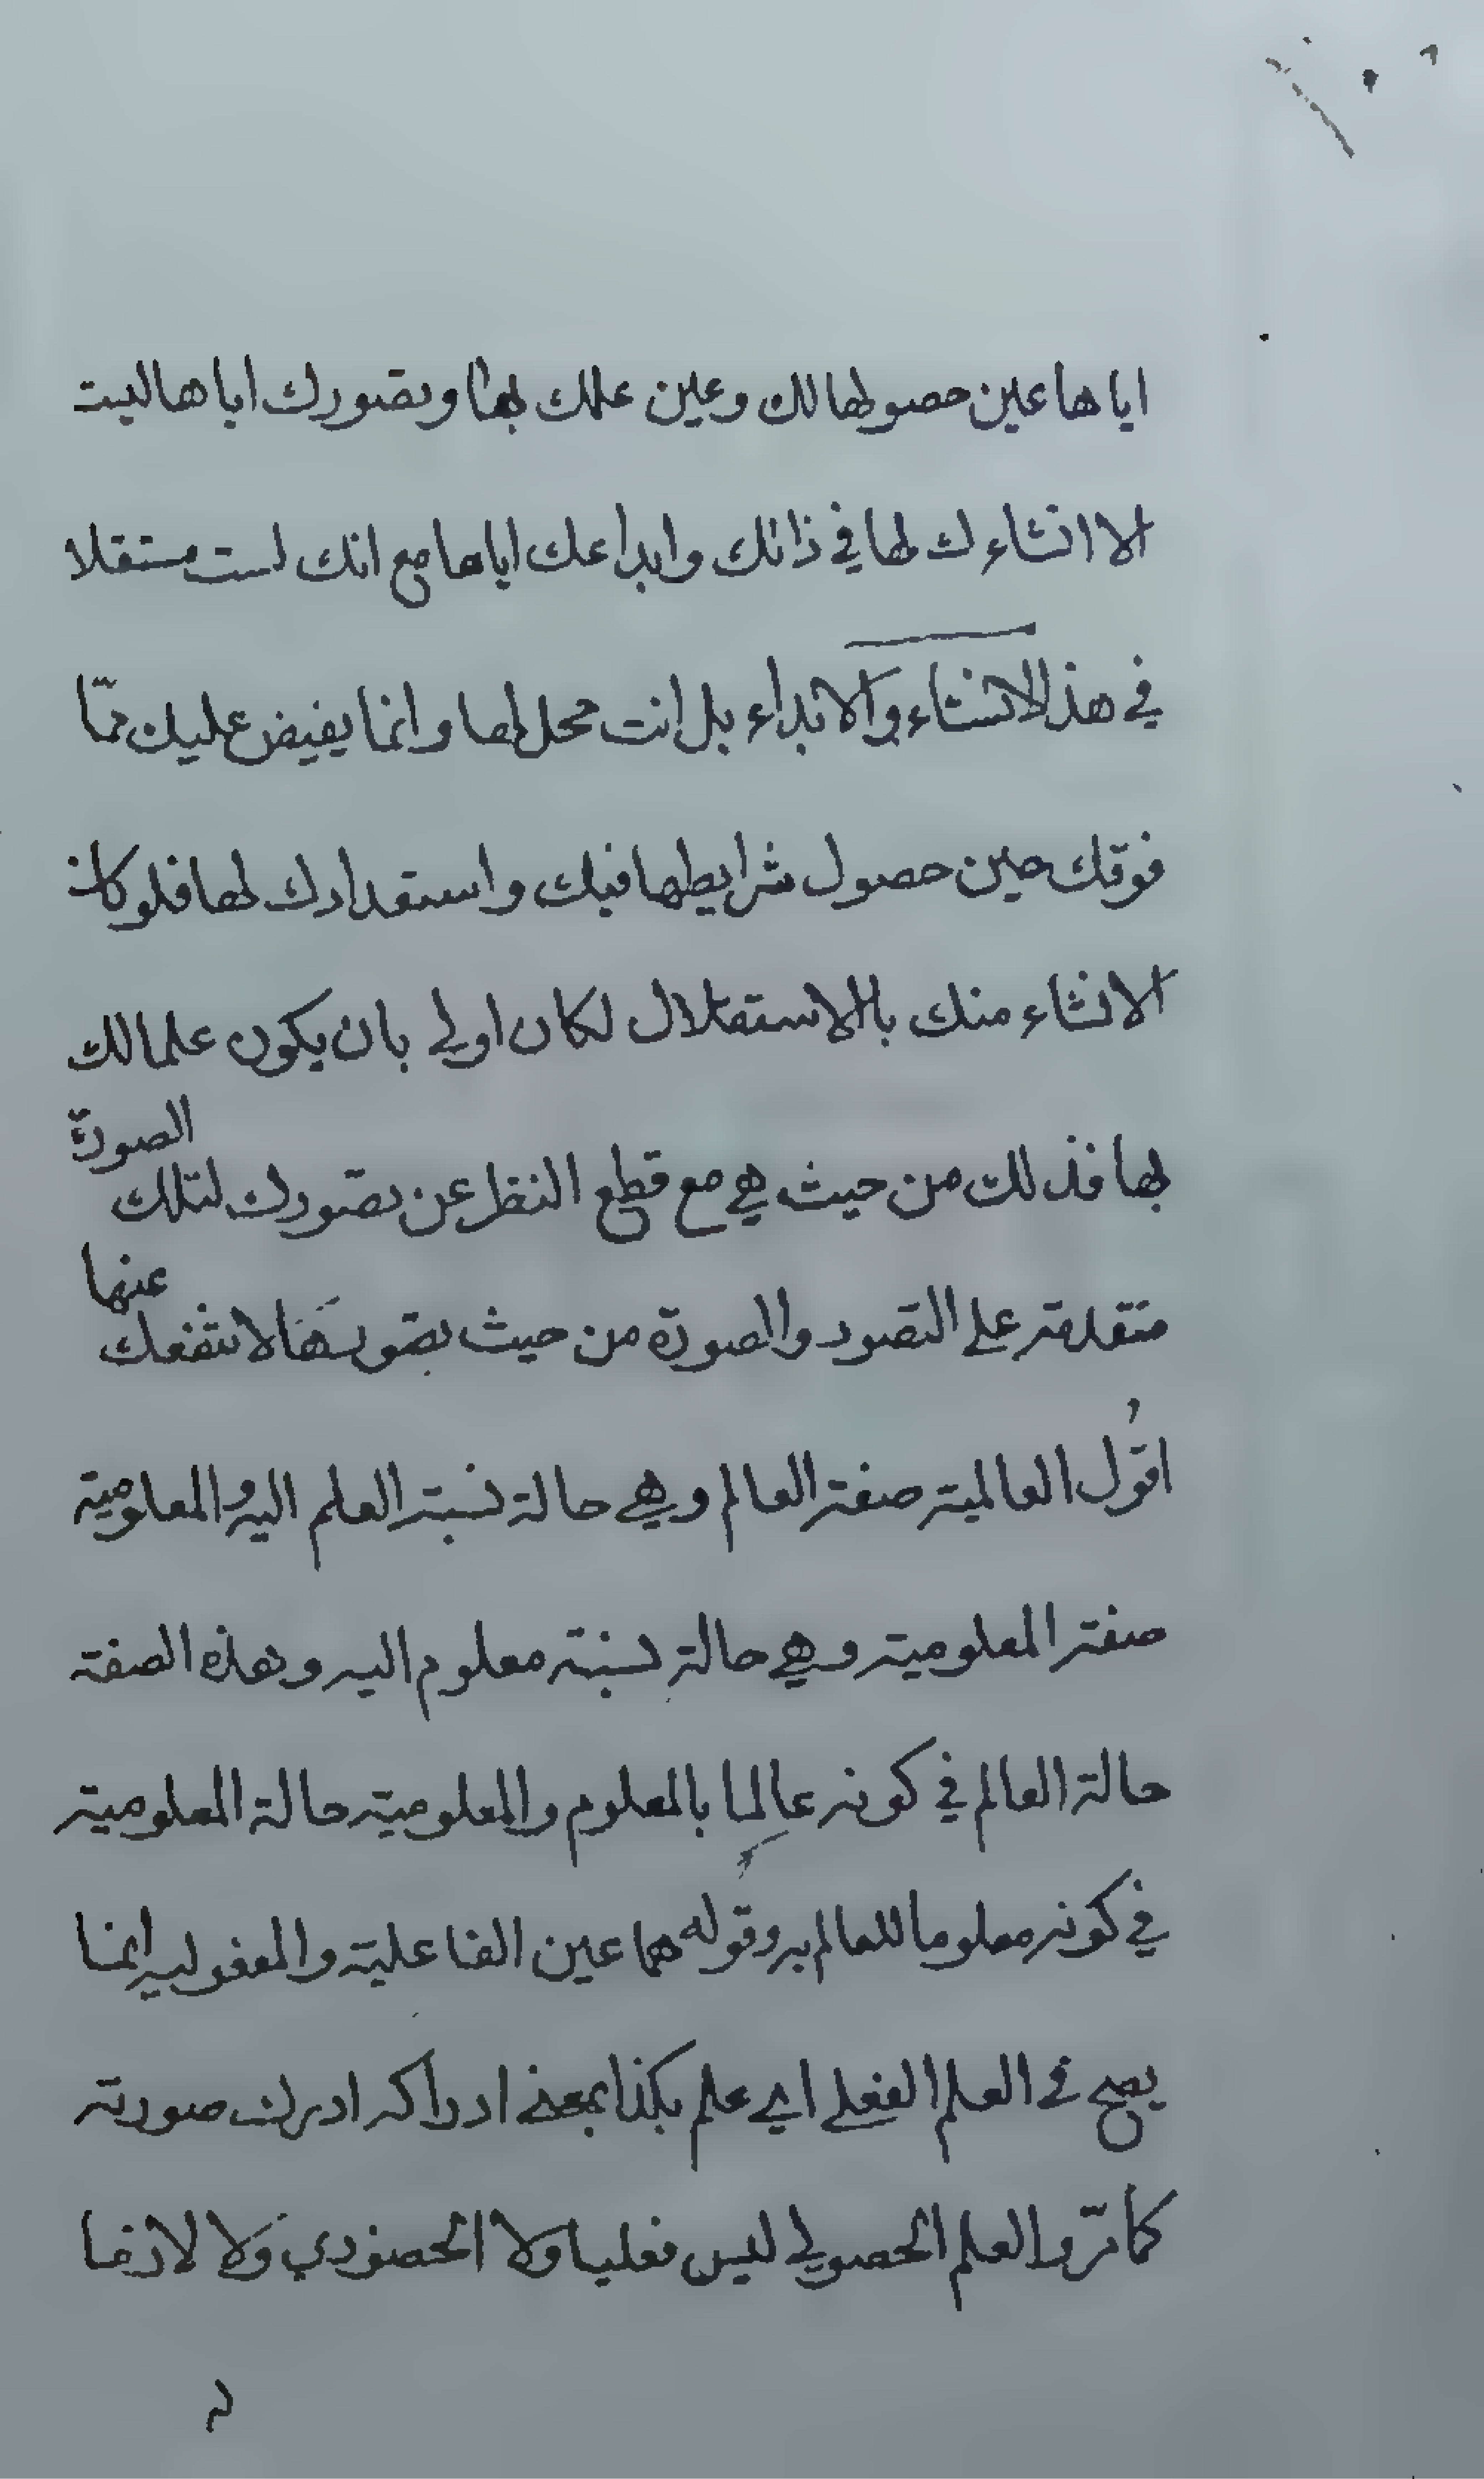 اياها عين حصولها لك وعين علمك بها وتصورك اياها ليت
الا انشاءك لها في ذاتك وابداعك اياها مع انك لست مستقلا
في هذا الانشاء والابداء بل انت محل لها وانما يفيض عليك ممّا
فوقك حين حصول شرايطها فيك واستعدادك لها فلو كان
الانشاء منك بالاستقلال لكان اولي بان يكون علما لك
بها فذلك من حيث هي مع قطع النظر عن تصورك لتلك الصورة
متقدمة علي التصور والصورة من حيث تصورها لا تنفك عنها
اقول العالمية صفة العالم وهي حالة نسبة العلم اليه والمعلومية
صفة المعلومية وهي حالة نسبة معلوم اليه وهذه الصفة
حالة العالم في كونه عالما بالمعلوم والمعلومية حالة المعلومية
في كونه معلوما للعالم به وقوله هما عين الفاعلية والمفعولية انما
يصح في العلم الفعلي اي علم بكذا بمعني ادراكه ادرك صورته
كما مرّ والعلم الحصولي ليس فعليا ولا الحضوري ولا لازما